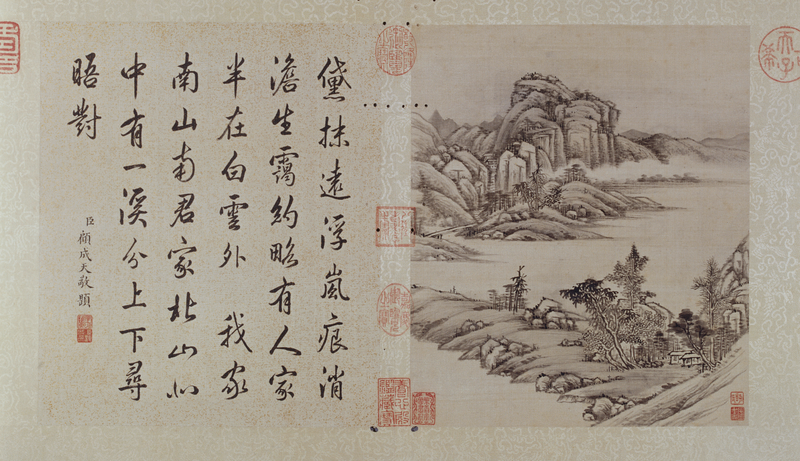 黛抹遠浮嵐痕消
澹生靄約略有人家
半在白雲外 我家
南山南君家北山北
中有一溪分上下尋
晤對
臣顧成天敬題